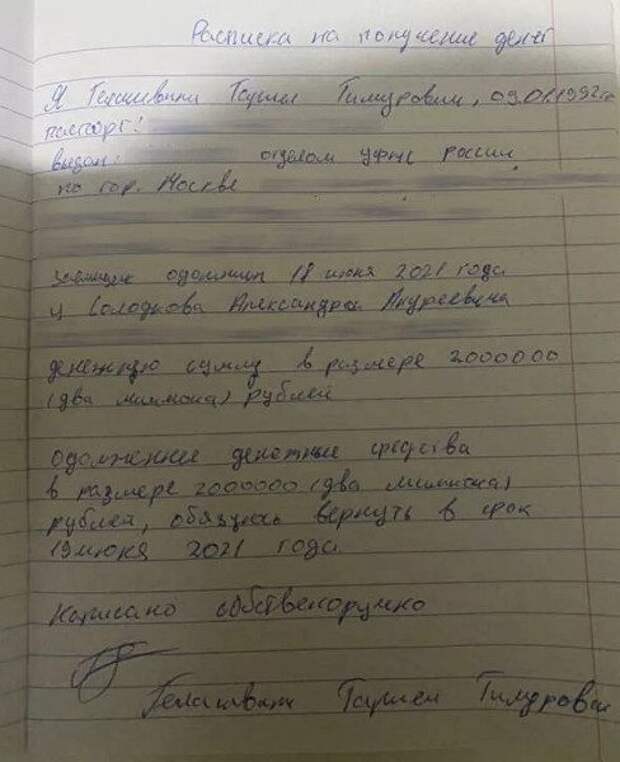 Расписка на получение денег
Я Гелашвили Тариел Тимурович, 09.01.1992г
паспорт:
выдан: отделом уфмс россии
по гор. Москве
одолжил 18 июня 2021 года
у Солодкова Александра Андреевича
денежную сумму в размере 2000000
(два миллиона) рублей
одолженные денежные средства
в размере 2000000 (два миллиона)
рублей, обязуюсь вернуть в срок
19 июня 2021 года
Написано собственоручно
Гелашвили Тариел Тимурович